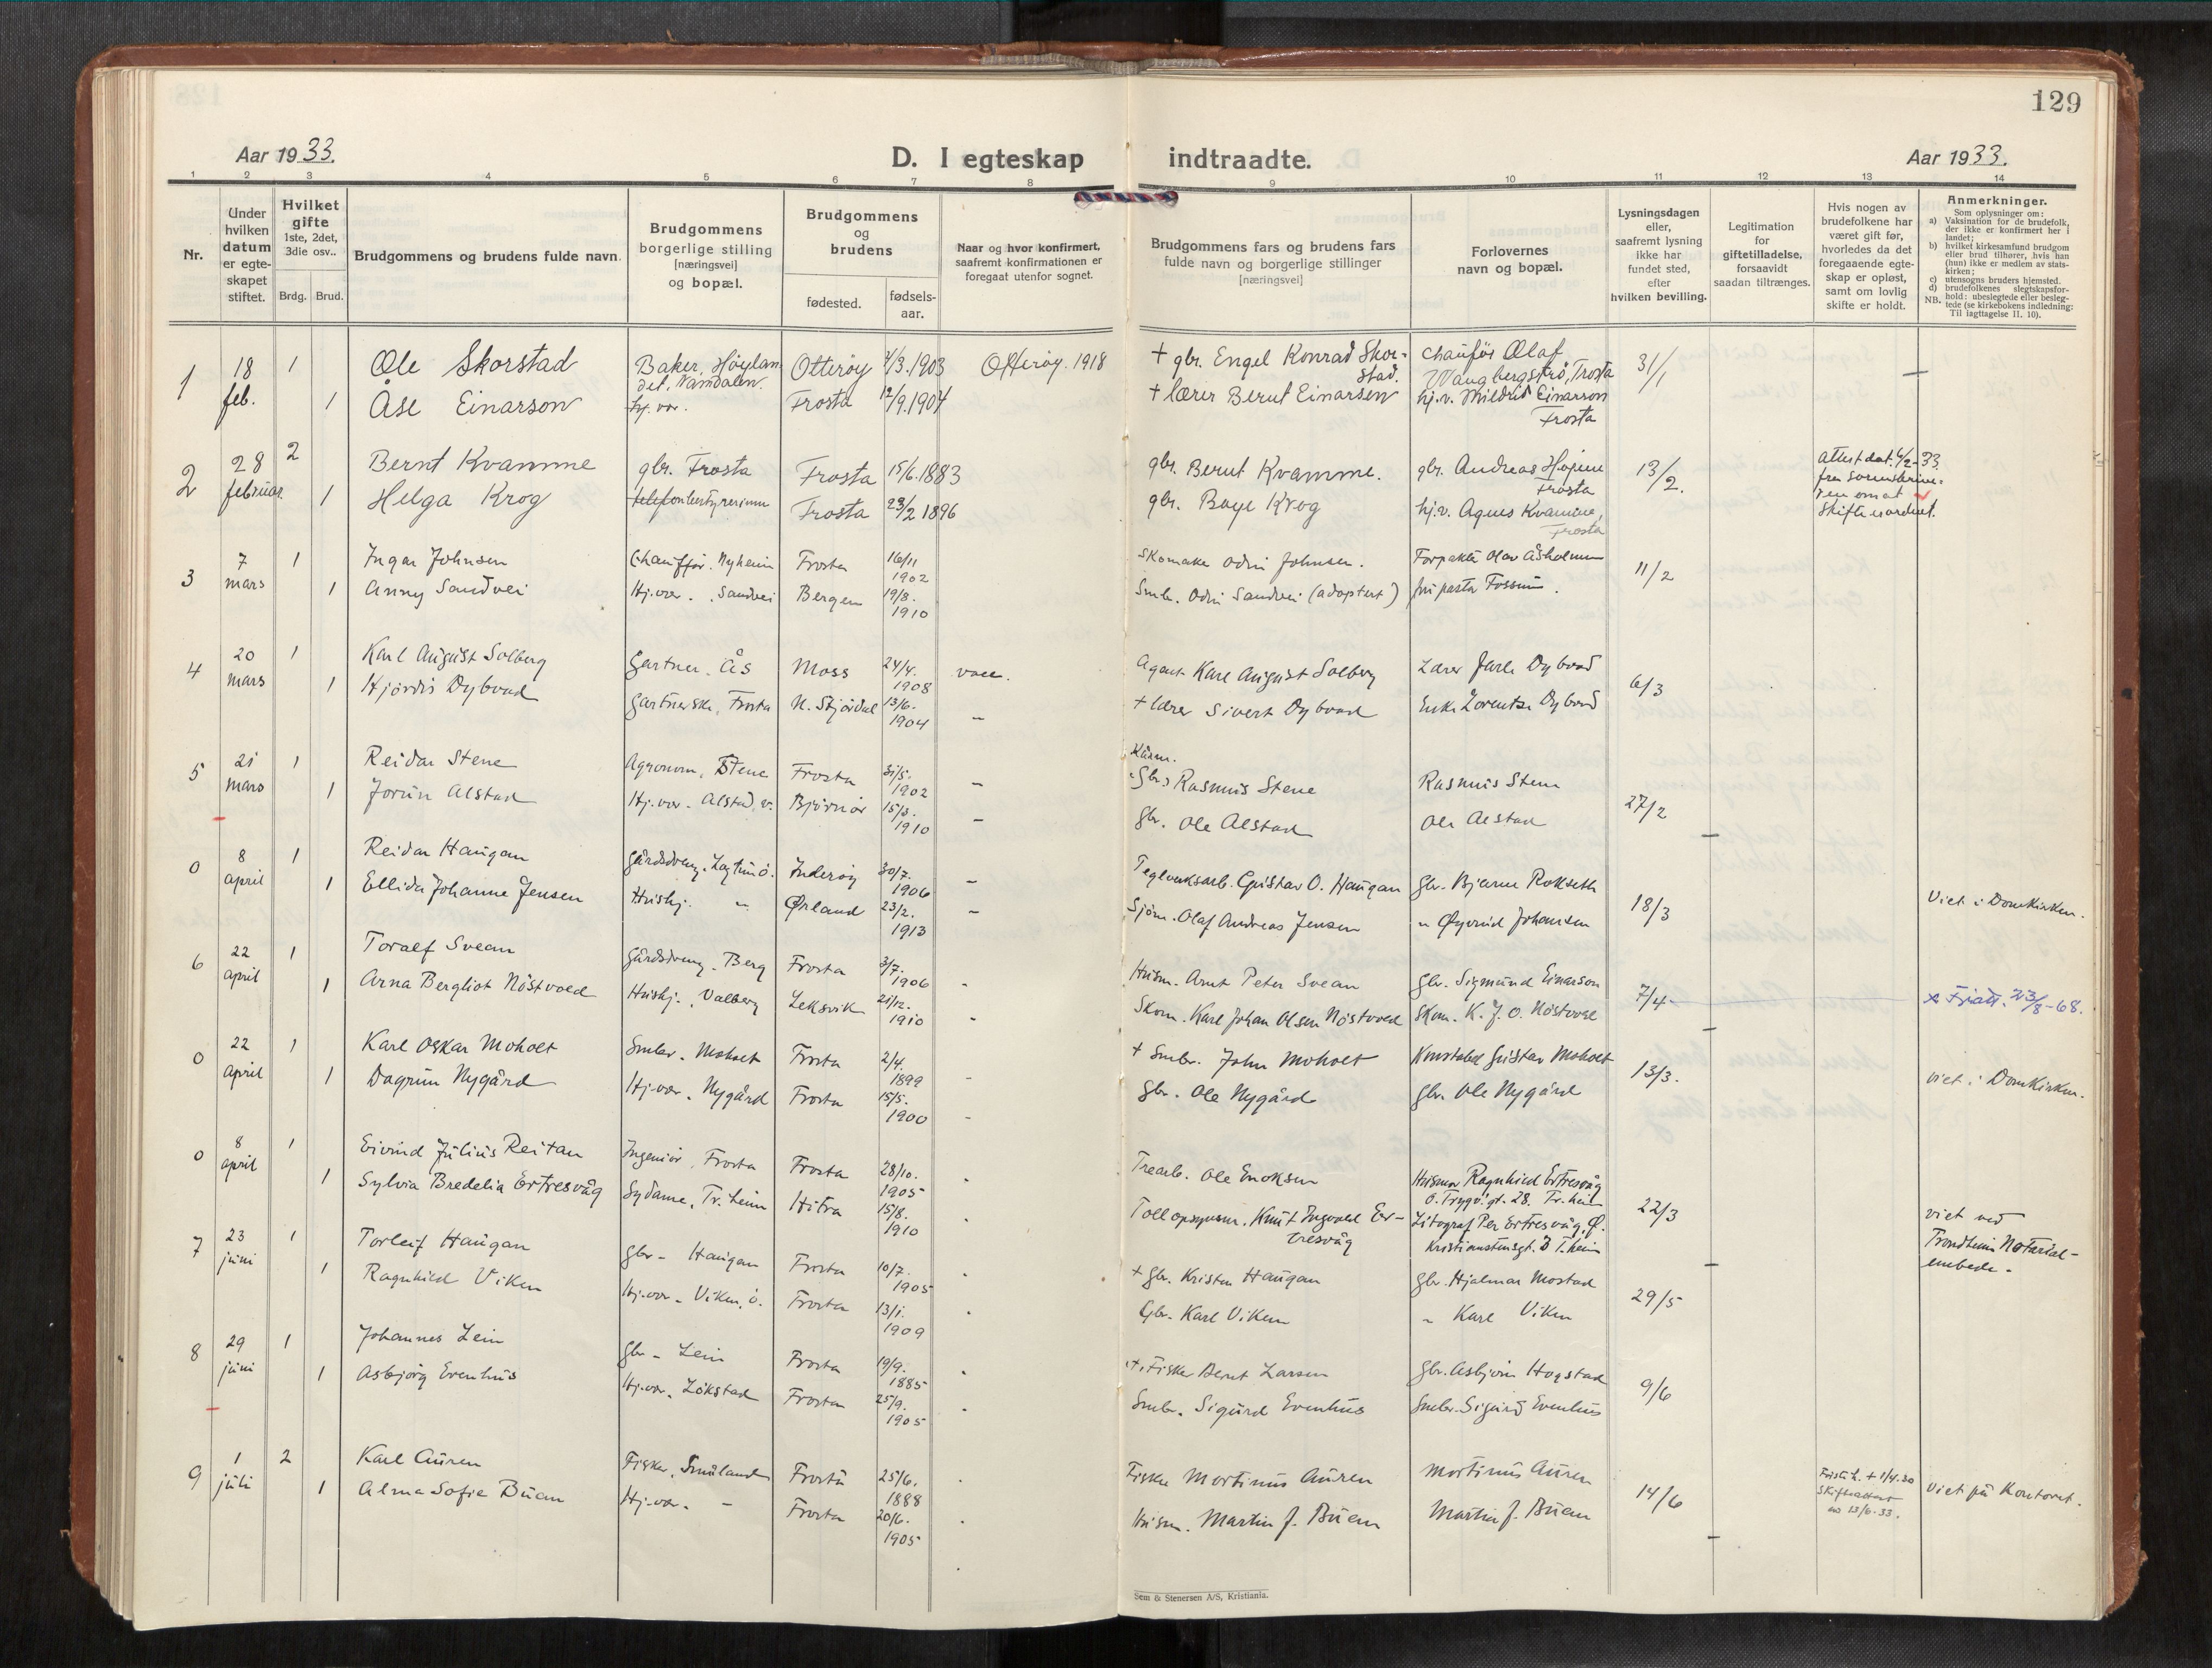 129
Aar 1933.
D. I egteskap indtraadte.
Aar 1933.
1 2 3 4 5 6 7 8 9 10 11 12 13 14
Nr.
Under hvilken datum er egteskapet stiftet.
Hvilket gifte 1ste, 2det, 3die osv..
Brdg. Brud.
Brudgommens og brudens fulde navn.
Brudgommens borgerlige stilling [næringsvei] og bopæl.
Brudgommens og brudens
fødested.
fødsels-aar.
Naar og hvor konfirmert, saafremt konfirmationen er foregaat utenfor sognet.
Brudgommens fars og brudens fars fulde navn og borgerlige stillinger [næringsvei]
Forlovernes navn og bopæl.
Lysningsdagen eller, saafremt lysning ikke har fundet sted, efter hvilken bevilling.
Legitimation for giftetilladelse, forsaavidt saadan tiltrænges.
Hvis nogen av brudefolkene har været gift før, hvorledes da det foregaaende egteskap er opløst, samt om lovlig skifte er holdt.
Anmerkninger.
Som oplysninger om:
a) Vaksination for de brudefolk, der ikke er konfirmert her i landet;
b) hvilket kirkesamfund brudgom eller brud tilhører, hvis han (hun) ikke er medlem av statskirken;
c) utensogns bruders hjemsted.
d) brudefolkenes slegtskapsforhold: ubeslegtede eller beslegtede (se kirkebokens indledning: Til iagttagelse II. 10).
NB.
1 18 feb. 1 Ole Skorstad Baker, Høylandet, Namdalen. Otterøy 4/3.1903 Otterøy. 1918 + gbr. Engel Konrad Skorstad. Chauför Olaf Vangbergstrø, Frosta 31/1 —
1 Åse Einarson hj.vær. Frosta 12/9.1904 + lærer Bernt Einarsen hj.v. Mildrid Einarson Frosta
2 28 februar. 2 Bernt Kvamme gbr. Frosta Frosta 15/6.1883 gbr. Bernt Kvamme. gbr. Andreas Frosta 13/2. Attest dat. 6/2-33. fra
1 Helga Krog telefonbestyrerinne Frosta 23/2 1896 gbr. Boye Krog hj.v. Agnes Kvamme, Frosta skifte er ordnet.
3 7 mars 1 Ingar Johnsen Chauffør. Nyheim Frosta 16/11 1902 Skomaker Odin Johnsen. Forpakter Olav Åsholmen 11/2
1 Anny Sandvei Hj.vær. Sandvei Bergen 19/8. 1910 Smbr. Odin Sandvei (adoptert) fru pastor Fossum.
4 20 mars 1 Karl August Solberg Gartner. Ås Moss 24/4. 1908 vacc. Agent Karl August Solberg Lærer Jarle Dybvad 6/3
1 Hjördis Dybvad Gartnerske, Frosta N. Stjördal 13/6. 1904 – + lærer Sivert Dybvad Enke Lorentze Dybvad
5 21 mars 1 Reidar Stene Agronom, Stene Frosta 31/5. 1902 – Gbr. Rasmus Stene Rasmus Stene 27/2
1 Jorun Alstad Hj.vær. Alstad, v. Björnör 15/3. 1910 – Gbr. Ole Alstad Ole Alstad —
0 8 april 1 Reidar Haugan Gårdsdreng. Inderøy 30/7. 1906 – Teglverksarb. Gustav O. Haugan Gbr. Bjarne Rokseth 18/3 Viet i Domkirken.
1 Ellida Johanne Jensen Hushj. " Ørland 23/2. 1913 – Sjöm. Olaf Andreas Jensen " Øyvind Johansen
6 22 april 1 Toralf Svean Gårdsdreng. Berg Frosta 3/7. 1906 - Husm. Arnt Peter Svean Gbr. Sigmund Einarson 7/4
1 Arna Bergliot Nöstvold Hushj. Valberg Leksvik 21/12. 1910 - Skom. Karl Johan Olsen Nöstvold Skom. K. J. O. Nöstvold — 23/8-68.
0 22 April 1 Karl Oskar Moholt Smbr. Moholt Frosta 2/4. 1899 - + Smbr. John Moholt Konstabel Gustav Moholt 13/3. viet i Domkirken.
1 Dagrun Nygård Hj.vær. Nygård Frosta 15/5. 1900 - Gbr. Ole Nygård Gbr. Ole Nygård
0 8 april 1 Eivind Julius Reitan Ingeniør, Frosta Frosta 28/10. 1905 - Trearb. Ole Enoksen Husmor Ragnhild Ertresvåg Ø. Trygv. gt. 28. Tr.heim 22/3 viet ved Trondheim Notarialembede.
1 Sylvia Bredelia Ertresvåg Sydame, Tr.heim Hitra 15/8. 1910 - Tollopsynsm. Knut Ingvald Ertresvåg Litograf Per Ertresvåg, Ø. Kristianstensgt. T.heim
7 23 juni 1 Torleif Haugan Gbr - Haugan Frosta 10/7. 1905 - + Gbr. Kristen Haugan Gbr. Hjalmar Mostad 29/5
1 Ragnhild Viken Hj.vær - Viken, ö. Frosta 13/1. 1909 - Gbr. Karl Viken " Karl Viken
8 29 juni 1 Johannes Lein Gbr - Lein Frosta 19/9. 1885 - + Fisker Bernt Larsen Gbr. Asbjörn Hogstad 9/6
1 Asbjörg Evenhus Hj.vær. Lökstad Frosta 25/9. 1905 - Smbr. Sigurd Evenhus Smbr. Sigurd Evenhus
9 1 juli 2 Karl Auren Fisker, Småland Frosta 25/6. 1888 - Fisker Mortinus Auren Mortinus Auren 14/6 + 1/4.30 Skifteattest av 13/6-33. Viet på Kontoret.
1 Alma Sofie Buan Hj.vær. – Frosta 20/6. 1905 - Husm. Martin J. Buan Martin J. Buan —
Sem & Stenersen A/S, Kristiania.